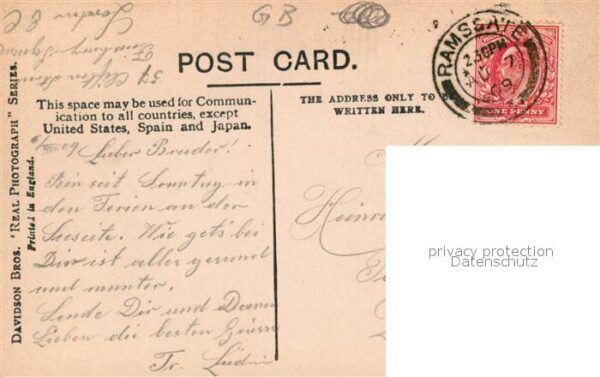 GB
London E C
Finsbury Square
POST CARD.
This space may be used for Commun-
ication to all countries, except
United States, Spain and Japan.
THE ADDRESS ONLY TO
WRITTEN HERE.
RAMSGATE
2.30PM
7
09
ONE PENNY
DAVIDSON BROS. "REAL PHOTOGRAPH" SERIES.
Printed in England.
09 Lieber Bruder!
Bin seit Sonntag in
den Ferien an der
Seeseite. Wie gets bei
Dir ist alles gesund
und munter.
Sende Dir und Deinen
Lieben die besten Grüsse
Fr.
Heinri
privacy protection
Datenschutz